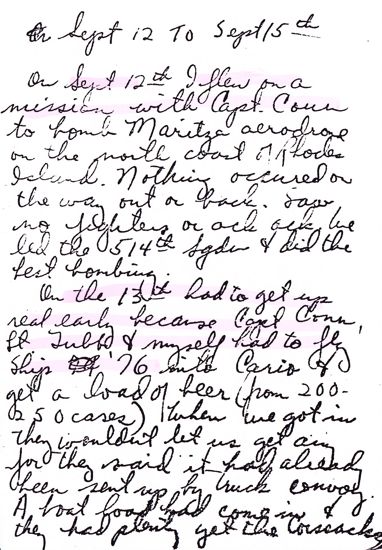 On Sept 12 To Sept 15th
On Sept 12th I flew on a
mission with Capt. Conn
to bomb Maritza aerodrome
on the north coast of Rhodes
Island. Nothing occured on
the way out or back. Saw
no fighters or ack ack. We
led the 514th Sqdn & did the
best bombing.
On the 13th had to get up
real early because Capt Conn,
Lt Tubbs & myself had to fly
Ship '76 into Cario &
get a load of beer (from 200-
250 cases) When we got in
They wouldn't let us get any
for they said it had already
been sent up by truck convoy.
A boat load had come in &
they had plenty yet the